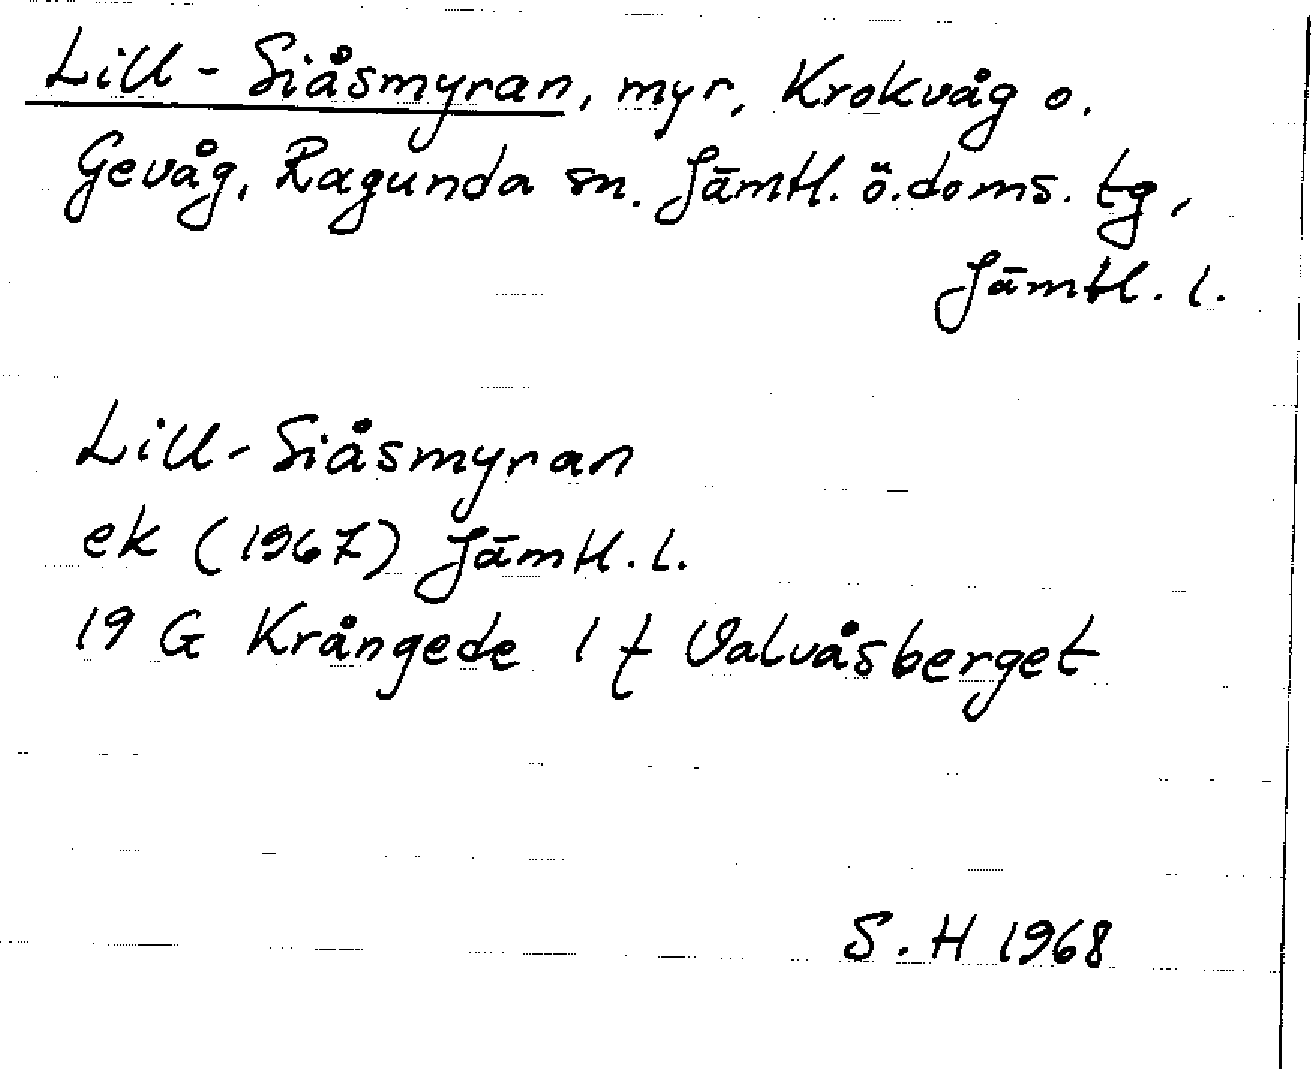 Lill-Siåsmyran, myr, Krokvåg o.
Gevåg, Ragunda sn. Jämtl. ö. doms. tg,
Jämtl. l.
Lill-Siåsmyran
ek (1967) Jämtl. l.
19 G Krångede 1 f Valvåsberget
S. H 1968